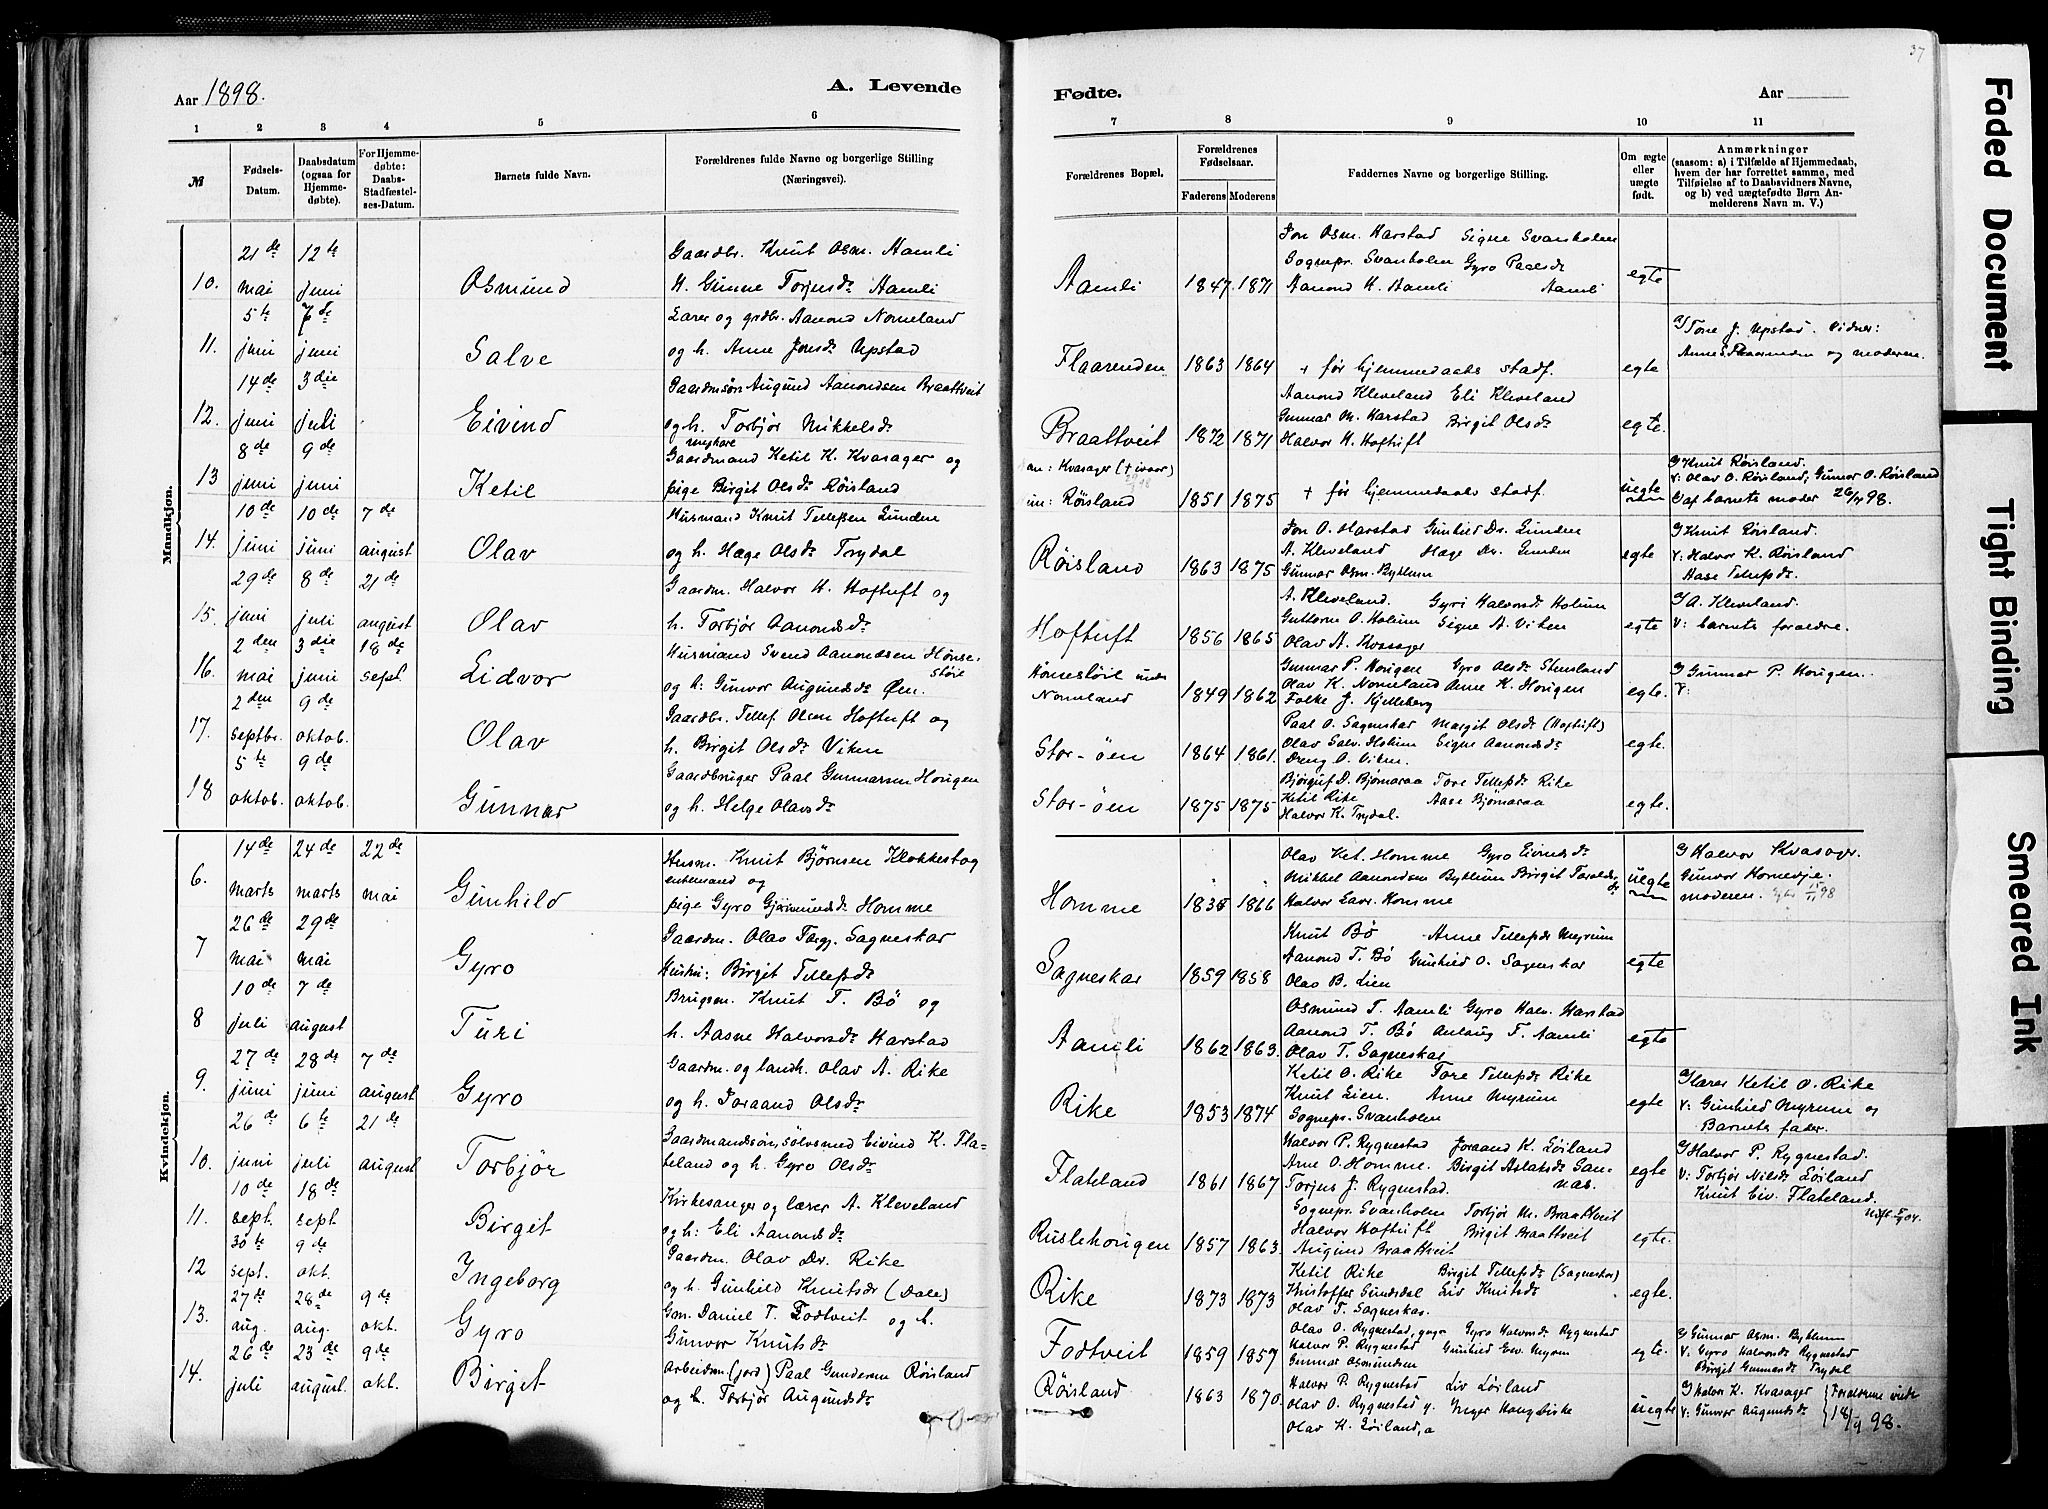 37
Aar 1898.
A. Levende
Fødte.
Aar
1 2 3 4 5 6
7 8 9 10 11
№
Fødsels-Datum.
Daabsdatum (ogsaa for Hjemmedøbte).
For Hjemmedøbte: Daabs-Stadfæstelses-Datum.
Barnets fulde Navn.
Forældrenes fulde Navne og borgerlige Stilling (Næringsvei).
Forældrenes Bopæl.
Forældrenes Fødselsaar.
Faderens Moderens
Faddernes Navne og borgerlige Stilling.
Om ægte eller uægte født.
Anmærkninger
(saasom: a) i Tilfælde af Hjemmedaab, hvem der har forrettet samme, med Tilføielse af to Daabsvidners Navne, og b) ved uægtefødte Børn Anmelderens Navn m. V.)
Mandkjøn.
10. 21de mai 12te juni Osmund
Gaardbr. Knut Osm. Aamli
H. Gunne Torjusdr. Aamli
Aamli 1847. 1871
Jon Osm. Harstad Signe Svanholm
Sognepr. Svanholm Gyro Paalsdr
Aanond K. Aamli Aamli
egte
11. 5te juni 7de juni Salve
Lærer og grdbr. Aanond Nomeland
og h. Anne Jonsdr Upstad
Flaarenden 1863 1864
+ før hjemmedaabs stadf.
egte
Tone J. Upstad. Vidner:
Anne S. Flaarenden og moderen.
12. 14de juni 3die juli Eivind
Gaardmsøn Augund Aanondsen Braattveit
og h. Torbjør Mikkelsdr
Braattveit 1872 1871
Aanond Kleveland Eli Kleveland
Gunnar M. Harstad Birgit Olsdr
Halvor H. Hoftuft
egte.
13 8de juni 9de juni Ketil
Gaardmand Ketil K. Kvasager og
pige Birgit Olsdr Røisland
Kvasager
Røisland 1851 1875
+ før hjemmedaabs stadf.
uegte
Knut Røisland.
V: Olav O. Røisland, Gunnar O. Røisland
af barnets moder 98.
14. 10de juni 10de juni 7de august Olav
Husmand Knut Tellefsen Lunden
og h. Hæge Olsdr Trydal
Røisland 1863 1875
Jon O. Harstad Gunhild Dr. Lunden
A. Kleveland Hæge Dr. Lunden
Gunnar Osm. Byklum
egte
Knut Røisland.
V: Halvor K. Røisland
Aase Tellefsdr.
15. 29de juni 8de juli 21de august Olav
Gaardm. Halvor H. Hoftuft og
h. Torbjør Aanondsdr
Hoftuft 1856 1865
A. Kleveland. Gyri Halvorsdr Holum
Guttorm O. Holum Signe A. Viken
Olav A. Kvasager
egte
A. Kleveland.
V: barnets foreldre.
16. 2den mai 3die juni 18de sept Lidvor
Husmand Svend Aanondsen Hønse-
støil
og h: Gunvor Augundsdr Øen.
Hønsestøil under
Nomeland 1849 1862
Gunnar P. Hougen Gyro Olsdr Stensland
Olav K. Nomeland Anne K. Hougen
Folke J. Kjelleberg
egte.
Gunnar P. Hougen.
V:
17. 2den septbr. 9de oktob. Olav
Gaardbr. Tellef Olsen Hoftuft og
h. Birgit Olsdr Viken
Stor-øen 1864 1861.
Paal O. Sagneskar Margit Olsdr (Hoftuft)
Olav Salv. Holum Signe Aanondsdr
Dreng O. Viken.
egte.
18 5te oktob. 9de oktob. Gunnar
Gaardbruger Paal Gunnarsen Hougen
og h. Helge Olavsdr
Stor-øen 1875 1875
Bjørguf D. Bjørnaraa Tore Tellefsdr Rike
Ketil Rike Aase Bjørnaraa
Halvor K. Trydal.
egte.
Kvindekjøn.
6. 14de marts 24de marts 22de mai Gunhild
Husm. Knut Bjørnsen Klokkestog
enkemand og
pige Gyro Gjermundsdr Homme
Homme 1835 1866
Olav Ket. Homme Gyro Eivindsdr
Mikkel Aanondsen Byklum Birgit Taraldsdr
Halvor Lavr. Homme
uegte
Halvor Kvasager.
Gunvor Hornevje
moderen.
7 26de mai 29de mai Gyro
Gaardm. Olav Torgj. Sagneskar
Hustru: Birgit Tellefsdr
Sagneskar 1859 1858
Knut Bø Anne Tellefsdr Myrum
Aanond T. Bø Gunhild O. Sagneskar
Olav B. Lien
egte
8 10de juli 7de august Turi
Brugsm. Knut T. Bø og
h. Aasne Halvorsdr Harstad
Aamli 1862 1863.
Osmund T. Aamli Gyro Halv. Harstad
Aanond T. Bø Aslaug T. Aamli
Olav T. Sagneskar
egte
9. 27de juni 28de juni 7de august Gyro
Gaardm. og landh. Olav A. Rike
og h. Joraand Olsdr
Rike 1853 1874
Ketil O. Rike Tore Tellefsdr Rike
Knut Lien. Anne Myrum
Sognepr. Svanholm
egte
Lærer Ketil O. Rike
V: Gunhild Myrum og
Barnets fader.
10. 26de juni 6te juli 21de august Torbjør
Gaardmandssøn, sølvsmed Eivind K. Fla-
teland og h. Gyro Olsdr
Flateland 1861 1867
Halvor P. Rygnestad Joraand K. Løiland
Arne O. Homme. Birgit Aslaksdr San-
Torjus J. Rygnestad. næs.
egte
Halvor P. Rygnestad.
V: Torbjør Nilsdr Løiland
Knut Eiv. Flateland.
11. 10de sept. 18de sept. Birgit
Kirkesanger og lærer A. Kleveland
og h: Eli Aanondsdr
Ruslehougen 1857 1863.
Sognepr. Svanholm Torbjør M. Braattveit
Halvor Hoftuft Birgit Braattveit
Augund Braattveit
egte.
12 30te sept. 9de okt. Ingeborg
Gaardm. Olav Dr. Rike
og h. Gunhild Knutsdr (Dale)
Rike 1873 1873
Ketil Rike Birgit Tellefsdr (Sagneskar)
Kristoffer Sundsdal Liv Knutsdr
Olav T. Sagneskar.
egte.
13. 27de aug. 28de aug. 9de okt. Gyro
Gm. Daniel T. Fodtveit og h.
Gunvor Knutsdr
Fodtveit 1859 1857
Olav O. Rygnestad, Gyro Halvorsdr Rygnestad
Halvor P. Rygnestad Gunhild Myrum
Gunnar Osmundsen
egte.
Gunnar Osm. Byklum
V: Gyro Halvorsdr Rygnestad
Birgit Gunnarsdr Trydal
14. 26de juli 23de august. 9de okt. Birgit
Arbeidsm (jord) Paal Gundersen Røisland
og h. Torbjør Augundsdr
Røisland 1863 1870.
Halvor P. Rygnestad Liv Løiland
Olav O. Rygnestad
Olav K. Løiland,
uegte
Halvor K. Kvasager
V: Gunvor Augundsdr
Foreldrene viede
18/9 98.
Faded Document
Tight Binding
Smeared Ink